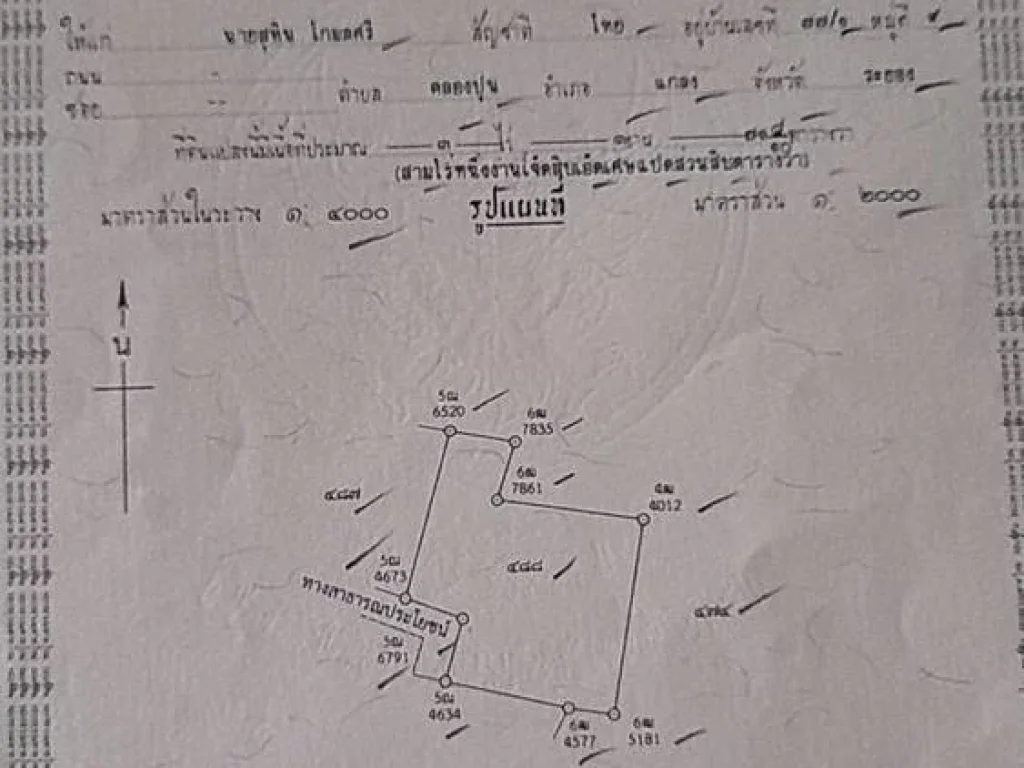 ให้แก่ นายสุทิน โกมลศรี สัญชาติ ไทย อยู่บ้านเลขที่ ๗๗/๑ หมู่ที่ ๕
ถนน -
ซอย -- ตำบล คลองปูน อำเภอ แกลง จังหวัด ระยอง
ที่ดินแปลงนี้มีเนื้อที่ประมาณ ๓ ไร่ ๑ งาน ตารางวา
(สามไร่หนึ่งงานเจ็ดสิบเอ็ดเศษแปดส่วนสิบตารางวา)
มาตราส่วนในระวาง ๑: ๔๐๐๐ รูปแผนที่ มาตราส่วน ๑: ๒๐๐๐
น
5ฌ
6520
6ฒ
7835
6ฒ
7861
4012
๔๘๗
๔๘๘
5ฌ
4673
ทางสาธารณประโยชน์
5ฌ
6791
5ฌ
4634
6ฒ
4577
6ฒ
5181